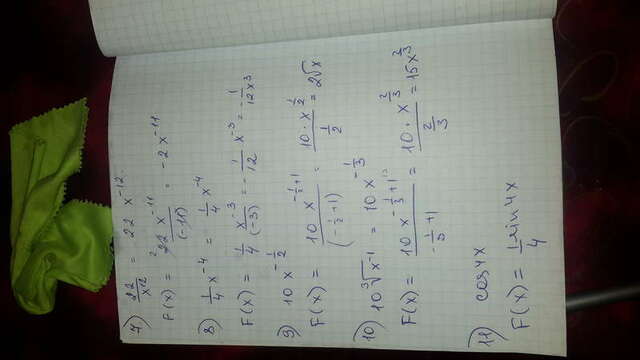 7) 22/x^12 = 22 x^-12.
F(x) = 22 x^-11/(-11) = -2 x^-11
8) 1/4 x^-4 = 1/4 x^-4
F(x) = 1/4 x^-3/(-3) = -1/12 x^-3 = -1/12x^3
9) 10 x^-1/2
F(x) = 10 x^(-1/2+1)/(-1/2+1) = 10 · x^1/2 / 1/2 = 2√x
10) 10 ∛x^-1 = 10 x^-1/3
F(x) = 10 x^(-1/3+1)/(-1/3+1) = 10 · x^2/3 / 2/3 = 15x^2/3
11) cos4x
F(x) = 1/4 sin 4x